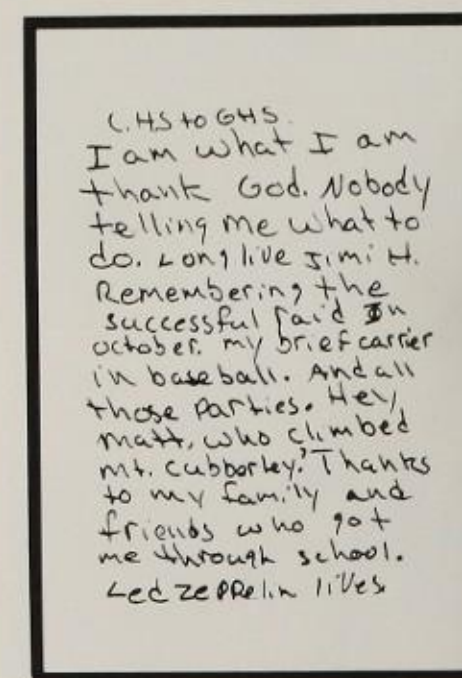 C.HS to GHS.
I am what I am
thank God. Nobody
telling me what to
do. Long live Jimi H.
Remembering the
successful raid In
october. my brief carrier
in baseball. And all
those Parties. Hey,
matt, who climbed
mt. cubborley? Thanks
to my family and
friends who got
me through school.
Led zeppelin lives.